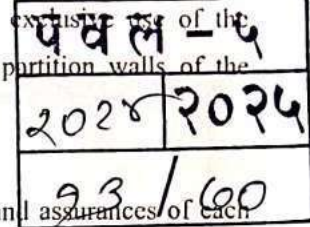 exclusive use of the
पवल - ५
partition walls of the
२०२४ २०२५
१३/७०
and assurances of each